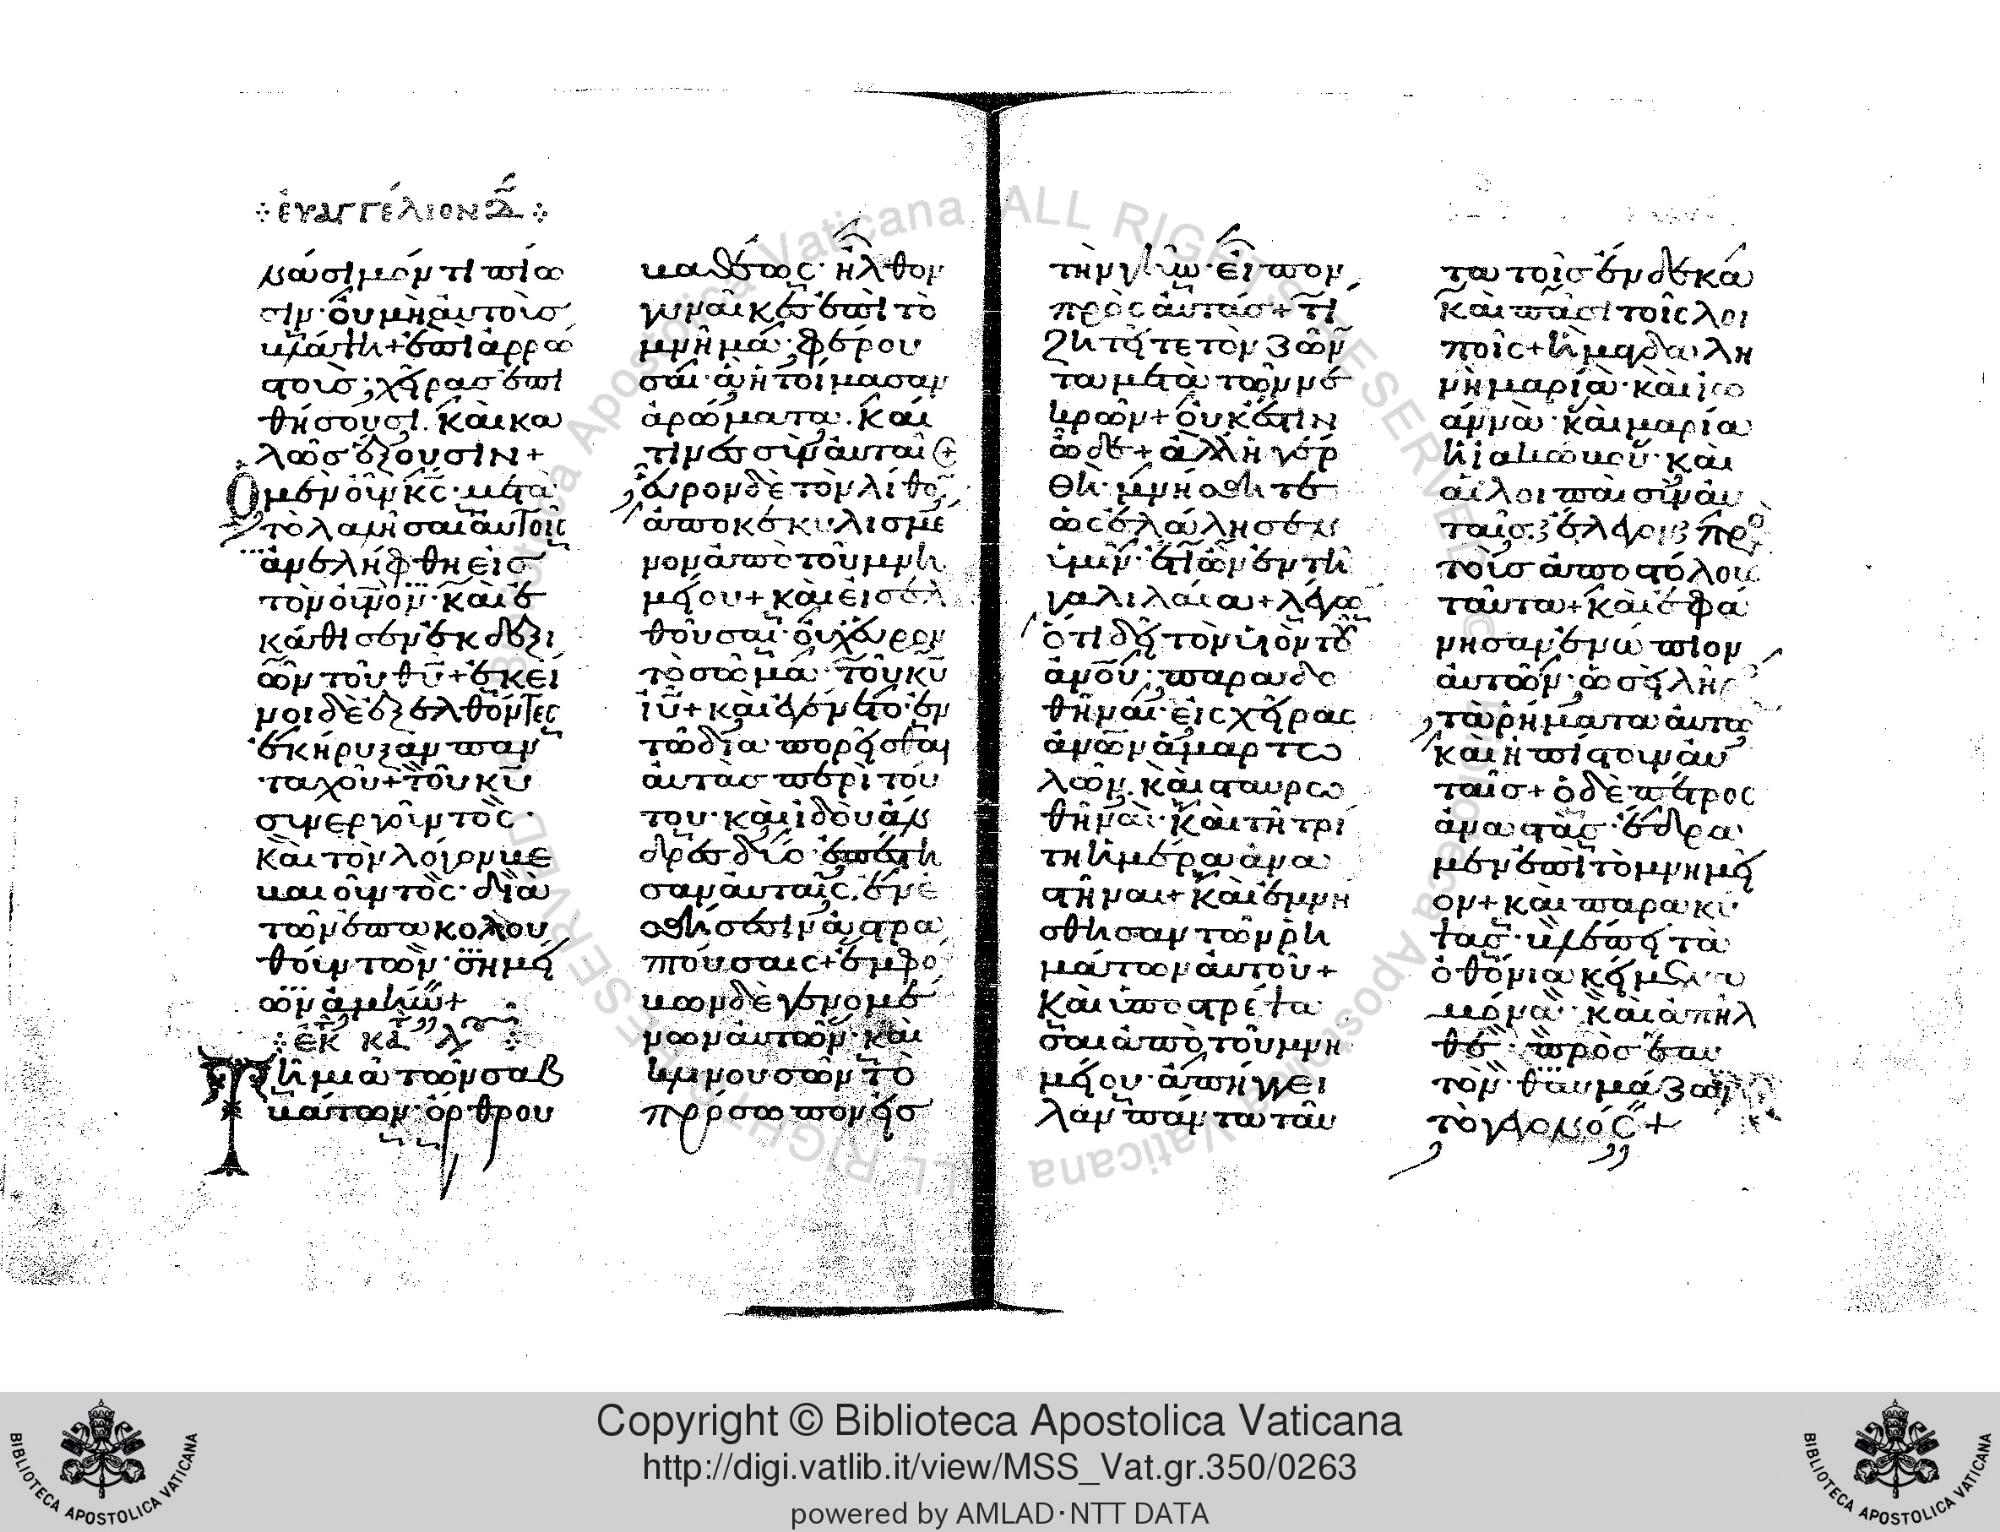 ⁘ ἐυαγγέλιον Δ ⁘
κάσιμόν τι πίω
σιν· ὀυ μὴ ἀυτοὺσ
βλάψη + ἐπὶ ἀρρώ
στουσ· χεῖρασ ἐπι
θήσουσι. καὶ κα
λῶσ ἕξουσιν +
Ὁ μὲν ὀῦν κ̅ς· μετὰ
τὸ λαλῆσαι ἀυτοῖς
ἀνελήφθη εἰσ
τὸν ο̅υ̅ν̅ο̅ν· καὶ ἐ
κάθισεν ἐκ δεξι
ῶν τοῦ θ̅υ + ἐκεῖ
νοι δὲ ἐξελθόντες
ἐκήρυξαν παν
ταχοῦ + τοῦ κ̅υ
συνεργοῦντος·
καὶ τὸν λόγον βε
βαιοῦντος· διὰ
τῶν ἐπακολου
θούντων σημεί
ων ἀμήν +
⁘ ἐκ κατ λ ⁘
Τῆ μιᾶ τῶν σαβ
βάτων· ὄρθρου
βαθέως· ἦλθον
γυναῖκεσ ἐπὶ τὸ
μνῆμα· φέρου
σαι· ἃ ἡτοίμασαν
ἀρώματα. καί
τινεσ σὺν ἀυταῖσ +
ἑυρον δὲ τὸν λίθον
ἀποκεκυλισμέ
νον ἀπὸ τοῦ μνη
μείου + καὶ εἰσελ
θοῦσαι· ὀυχ εὑρον
τὸ σῶμα τοῦ κ̅υ
ι̅υ + καὶ ἐγένετο ἐν
τῶ διαπορεῖσθαι
ἀυτὰσ περὶ τού
του· καὶ ἰδοὺ ἄν
δρεσ δύο ἐπέστη
σαν ἀυταῖς. ἐν ἐ
σθήσεσιν ἀστρα
πτούσαις + ἐμφό
βων δὲ γενομέ
νων ἀυτῶν· καὶ
κλινουσῶν τὸ
πρόσωπον εἰσ
τὴν γῆν· εἶπον
πρὸς ἀυτάσ + τί
ζητεῖτε τὸν ζῶν
τα μετὰ τῶν νε
κρῶν + ὀυκ ἔστιν
ὧδε + ἀλλ ἠγέρ
θη· μνήσθητε
ὡς ἐλάλησεν
ὑμῖν· ἔτι ὢν ἐν τῆ
γαλιλαία + λέγων
ὅτι δεῖ τὸν υἱὸν τοῦ
α̅ν̅ο̅υ· παραδο
θῆναι εἰς χεῖρας
α̅ν̅ω̅ν ἁμαρτω
λῶν. καὶ σταυρω
θῆναι· καὶ τῆ τρί
τη ἡμέρα ἀνα
στῆναι + καὶ ἐμνή
σθησαν τῶν ῥη
μάτων ἀυτοῦ +
Καὶ ὑποστρέψα
σαι ἀπὸ τοῦ μνη
μείου· ἀπήγγει
λαν πάντα ταῦ
τα τοῖσ ἕνδεκα
καὶ πᾶσι τοῖς λοι
ποῖς + ἡ μαγδαλη
νὴ μαρία· καὶ ἰω
άννα· καὶ μαρία
ἡ ἰακώβου· καὶ
αἱ λοιπαὶ σὺν ἀυ
ταῖσ. ἔλεγον πρὸς
τοὺσ ἀποστόλους
ταῦτα + καὶ ἐφά
νησαν ἐνώπιον
ἀυτῶν· ὡσεὶ λῆρος
τὰ ῥήματα ἀυτῶν
καὶ ἠπίστουν ἀυ
ταῖσ + ὁ δὲ πέτρος
ἀναστὰς· ἔδρα
μεν ἐπὶ τὸ μνημεῖ
ον + καὶ παρακύ
ψας· βλέπει τὰ
ὀθόνια κείμενα
μόνα· καὶ ἀπῆλ
θε· πρὸς ἑαυ
τὸν· θαυμάζων
τὸ γεγονός +
Copyright © Biblioteca Apostolica Vaticana
http://digi.vatlib.it/view/MSS_Vat.gr.350/0263
powered by AMLAD·NTT DATA
BIBLIOTECA APOSTOLICA VATICANA
BIBLIOTECA APOSTOLICA VATICANA